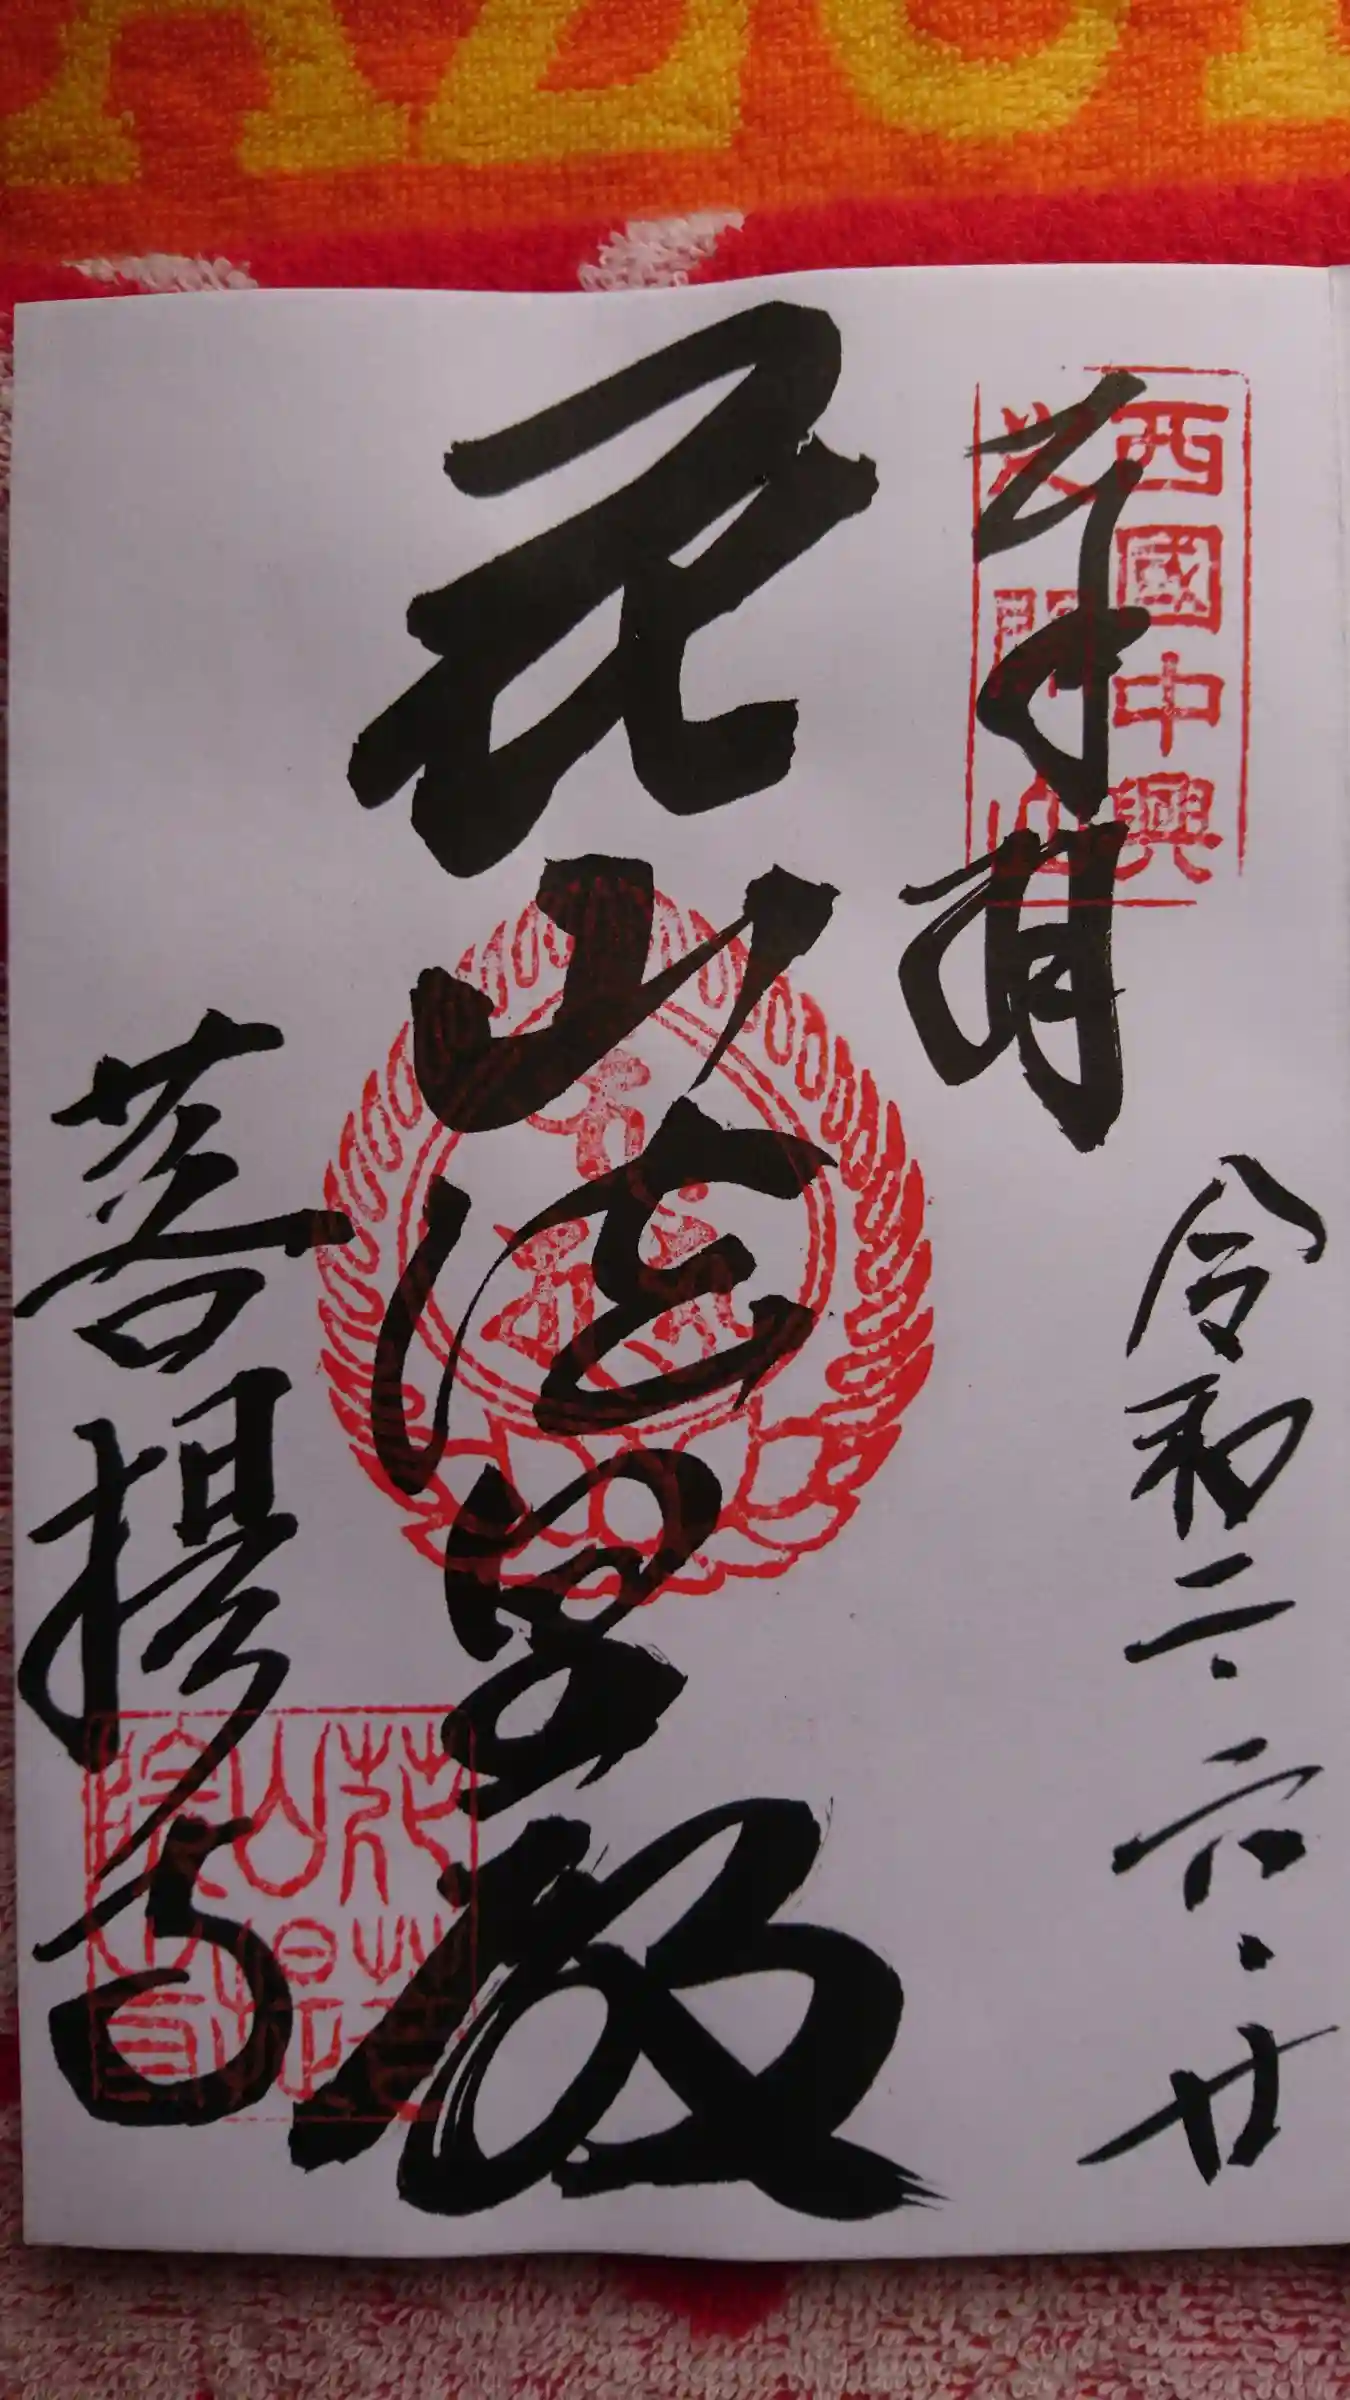 奉拝
西國中興
花山法皇殿
菩提寺
令和二・六・廿
花山院
菩提寺